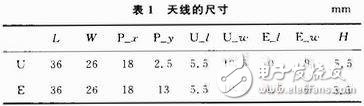 表 1 天线的尺寸 mm
L W P_x P_y U_l U_w E_l E_w H
U 36 26 18 2.5 5.5 5.5
E 36 26 18 13 5.5